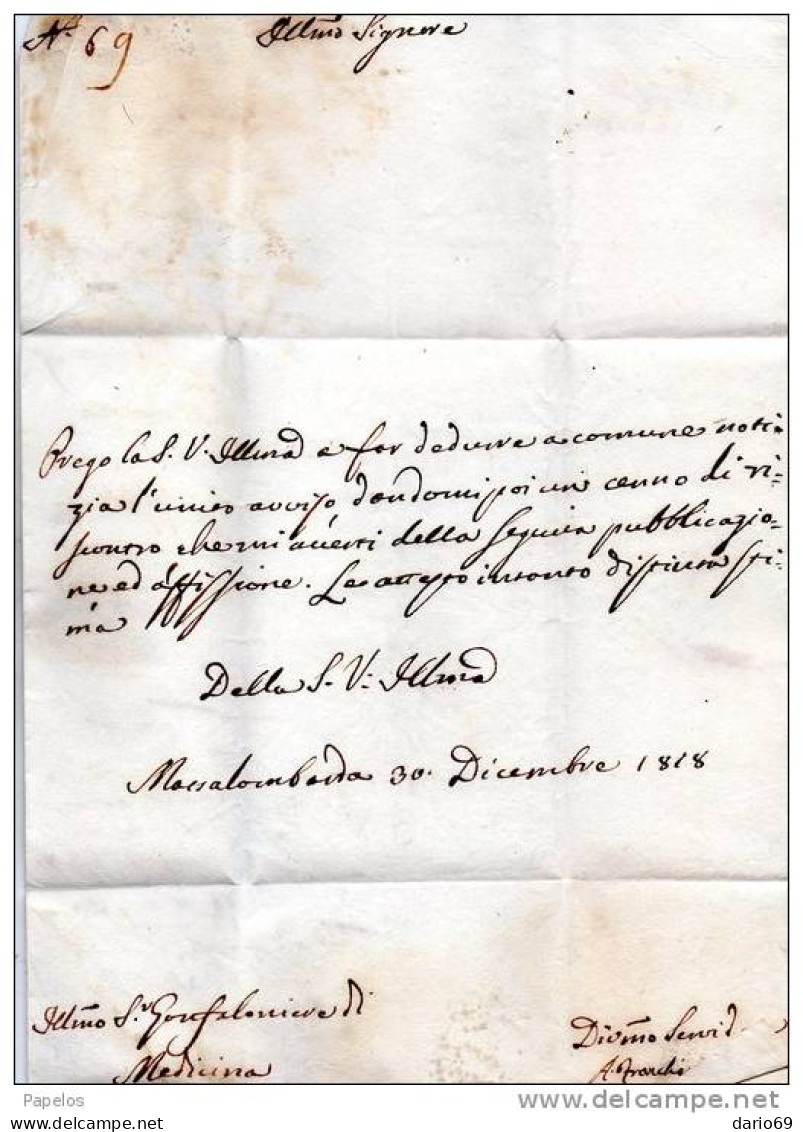 N.° 69 Illm̃o Signore
Prego la S. V. Illma a far dedurre a comune noti=
zia l'unito avviso dandomi poi un cenno di ri=
scontro che mi avverti della seguita pubblicazio=
ne ed affissione. Le attesto intanto distinta sti=
ma
Della S. V. Illma
Massalombarda 30. Dicembre 1818
Illm̃o S.r Gonfaloniere di
Medicina
Divm̃o Servid.
A. Franchi
Papelos
www.delcampe.net
dario69